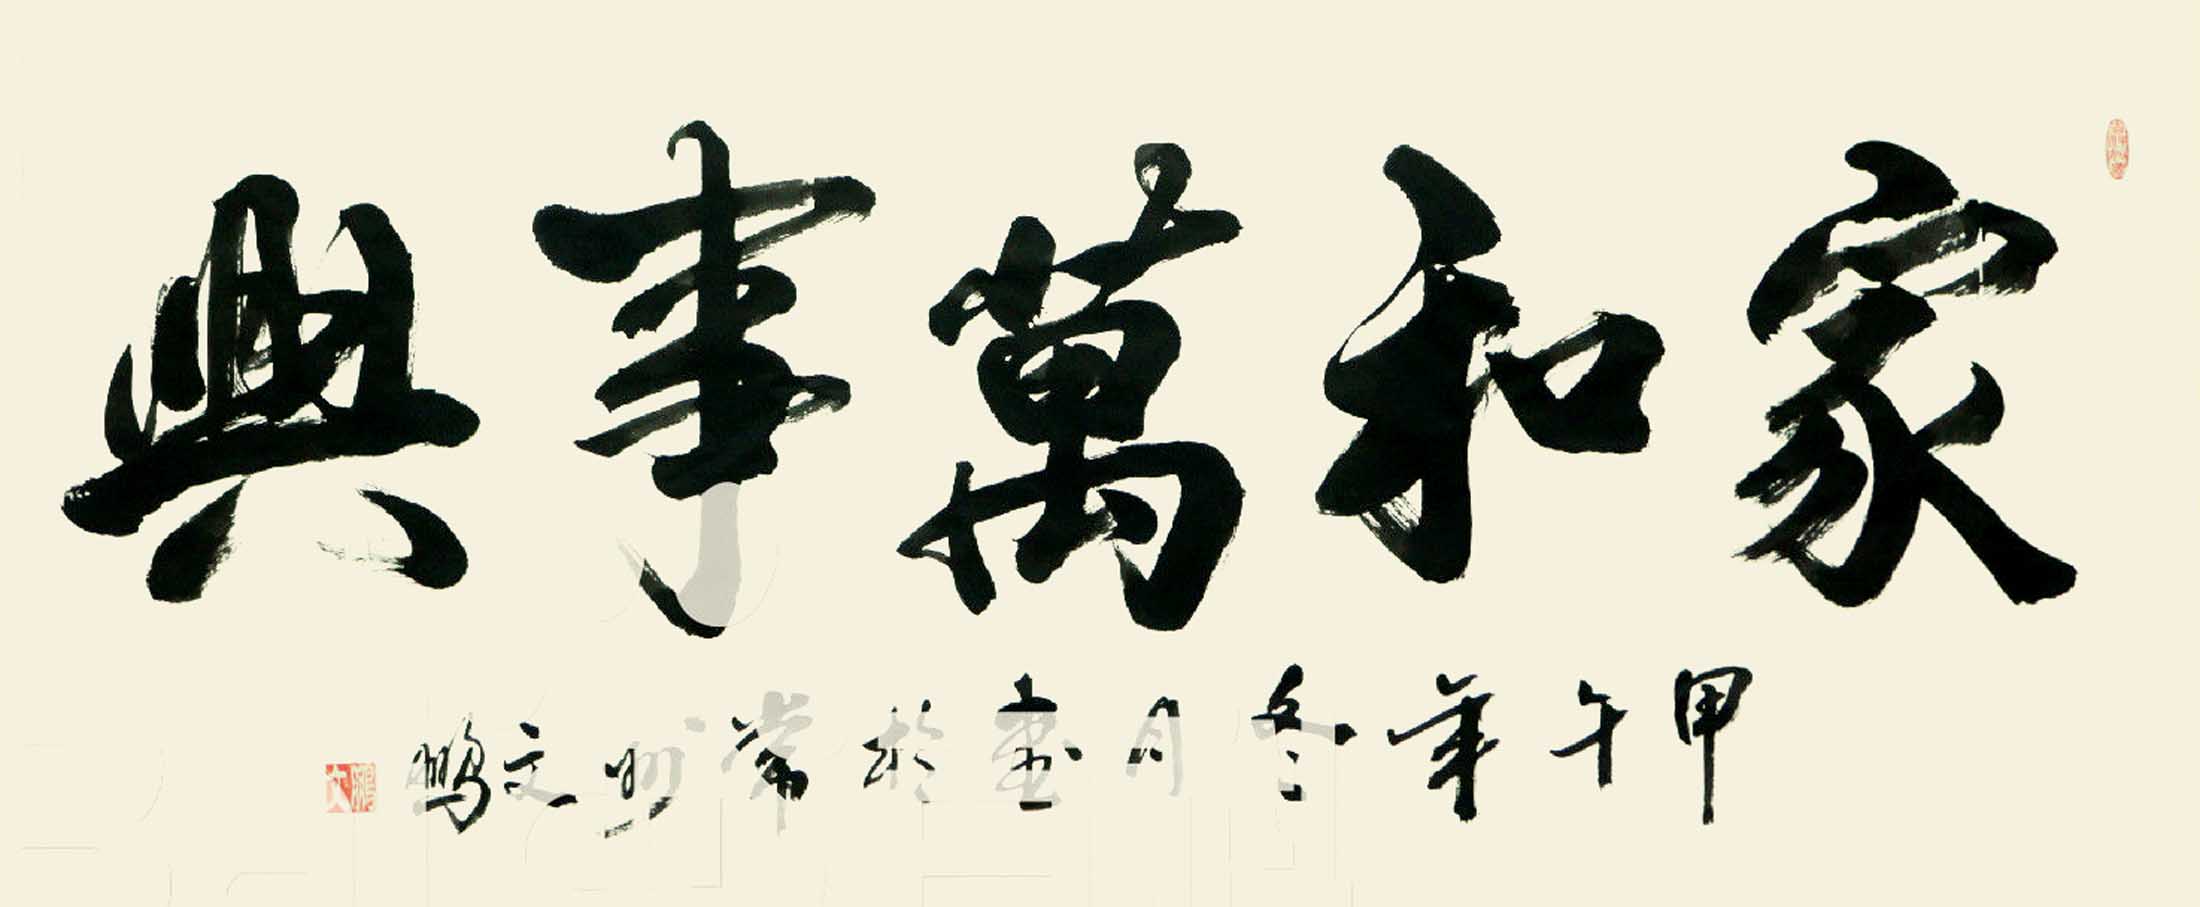 家和萬事興
甲午年冬月書於常州文鹏
文鹏